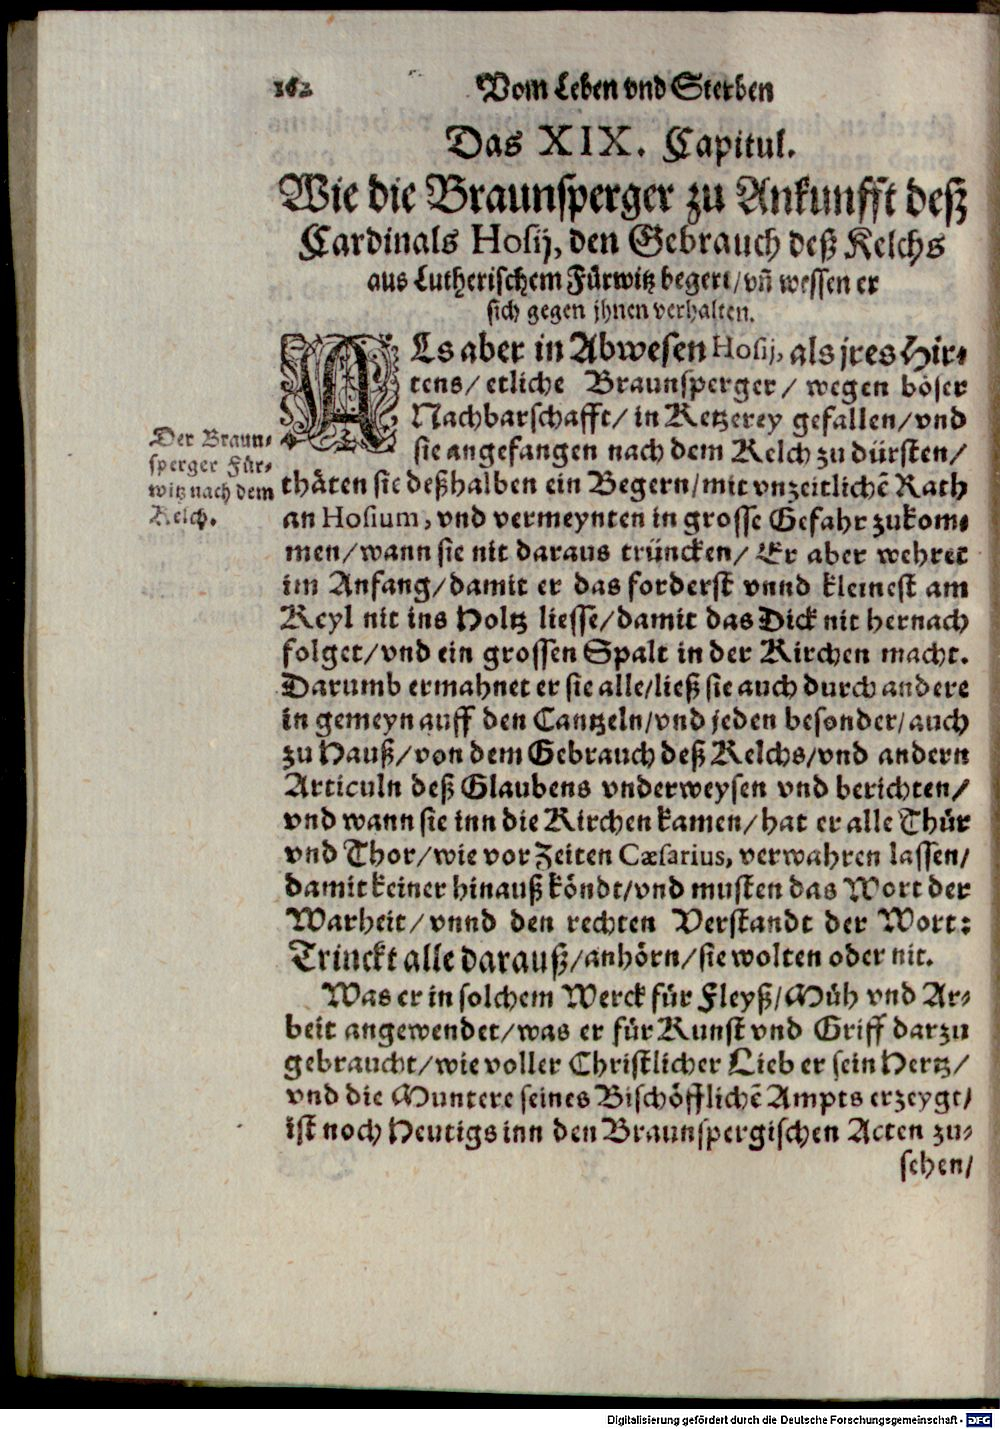 162
Vom Leben vnd Sterben
Das XIX. Capitul.
Wie die Braunsperger zu Ankunfft deß
Cardinals Hosij, den Gebrauch deß Kelchs
aus Lutherischem Fürwitz begert/ vñ wessen er
sich gegen jhnen verhalten.
ALs aber in Abwesen Hosij, als jres Hir-
tens/ etliche Braunsperger/ wegen böser
Nachbarschafft/ in Ketzerey gefallen/ vnd
sie angefangen nach dem Kelch zu dürsten/
Der Braun-
sperger Für-
witz nach dem
Kelch.
thäten sie deßhalben ein Begern/ mit vnzeitlichẽ Rath
an Hosium, vnd vermeynten in grosse Gefahr zukom-
men/ wann sie nit daraus trüncken/ Er aber wehret
im Anfang/ damit er das forderst vnnd kleinest am
Keyl nit ins Holtz liesse/ damit das Dick nit hernach
folget/ vnd ein grossen Spalt in der Kirchen macht.
Darumb ermahnet er sie alle/ ließ sie auch durch andere
in gemeyn auff den Cantzeln/ vnd jeden besonder/ auch
zu Hauß/ von dem Gebrauch deß Kelchs/ vnd andern
Articuln deß Glaubens vnderweysen vnd berichten/
vnd wann sie inn die Kirchen kamen/ hat er alle Thür
vnd Thor/ wie vor Zeiten Cæsarius, verwahren lassen/
damit keiner hinauß köndt/ vnd musten das Wort der
Warheit/ vnnd den rechten Verstandt der Wort:
Trinckt alle darauß/ anhörn/ sie wolten oder nit.
Was er in solchem Werck für Fleyß/ Müh vnd Ar-
beit angewendet/ was er für Kunst vnd Griff darzu
gebraucht/ wie voller Christlicher Lieb er sein Hertz/
vnd die Muntere seines Bischöfflichẽ Ampts erzeygt/
ist noch Heutigs inn den Braunspergischen Acten zu-
sehen/
Digitalisierung gefördert durch die Deutsche Forschungsgemeinschaft - DFG